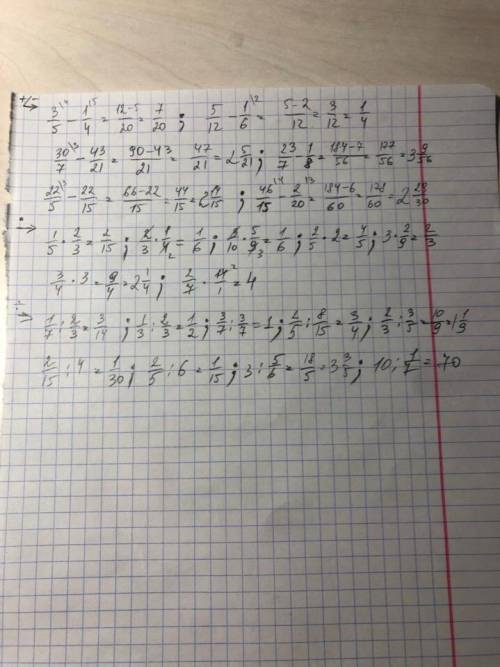 +/-
3/5 \4 - 1/4 \5 = 12-5/20 = 7/20 ; 5/12 - 1/6 \2 = 5-2/12 = 3/12 = 1/4
30/7 \3 - 43/21 = 90-43/21 = 47/21 = 2 5/21 ; 23/7 - 1/8 = 184-7/56 = 177/56 = 3 9/56
22/5 \3 - 22/15 = 66-22/15 = 44/15 = 2 14/15 ; 46/15 \4 - 2/20 \3 = 184-6/60 = 178/60 = 2 29/30
1/5 · 2/3 = 2/15 ; 2/3 · 1/4 2 = 1/6 ; 3/10 · 5/9 3 = 1/6 ; 2/5 · 2 = 4/5 ; 3 · 2/9 = 2/3
3/4 · 3 = 9/4 = 2 1/4 ; 2/7 · 14/1 2 = 4
1/7 : 2/3 = 3/14 ; 1/3 : 2/3 = 1/2 ; 3/7 : 3/7 = 1 ; 2/5 : 8/15 = 3/4 ; 2/3 : 3/5 = 10/9 = 1 1/9
2/15 : 4 = 1/30 ; 2/5 : 6 = 1/15 ; 3 : 5/6 = 18/5 = 3 3/5 ; 10 : 1/7 = 70